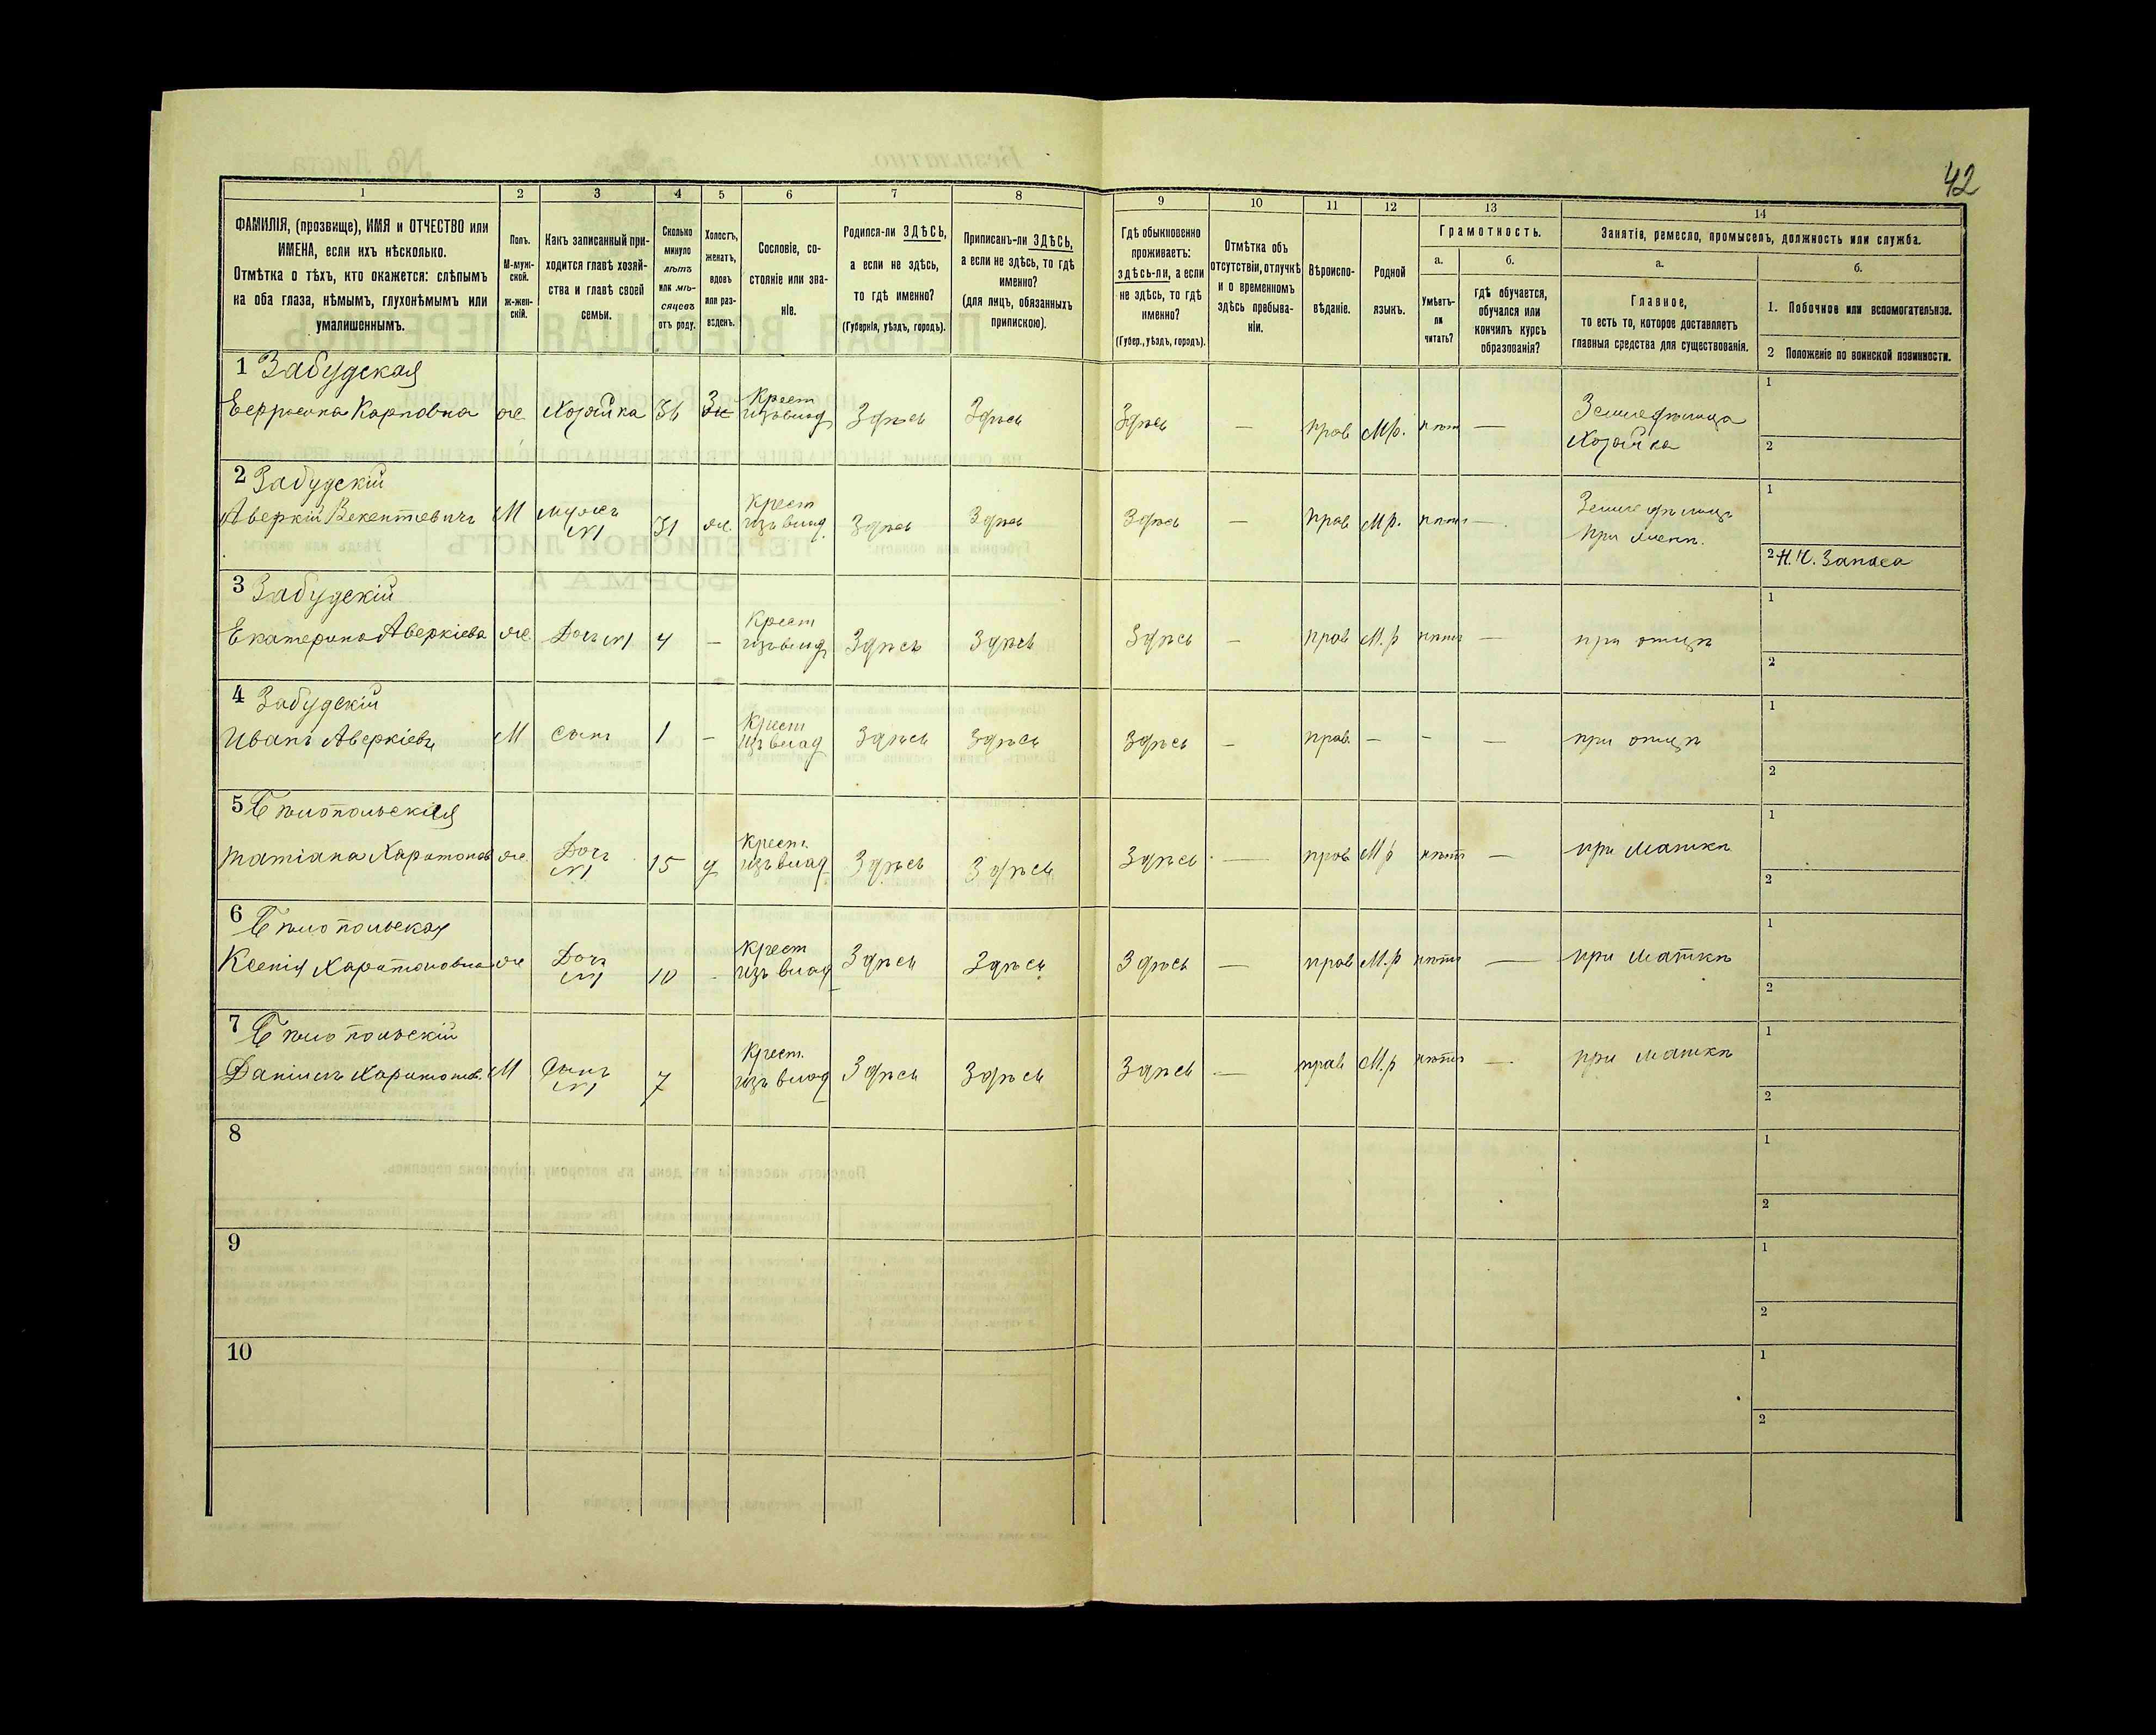 42
1 2 3 4 5 6 7 8 9 10 11 12 13 14
ФАМИЛІЯ, (прозвище), ИМЯ и ОТЧЕСТВО или
ИМЕНА, если ихъ нѣсколько.
Отмѣтка о тѣхъ, кто окажется: слѣпымъ
на оба глаза, нѣмымъ, глухонѣмымъ или
умалишеннымъ.
Полъ.
М-муж-
ской.
ж-жен-
скій.
Какъ записанный при-
ходится главѣ хозяй-
ства и главѣ своей
семьи.
Сколько
минуло
лѣтъ
или мѣ-
сяцевъ
отъ роду.
Холостъ,
женатъ,
вдовъ
или раз-
веденъ.
Сословіе, со-
стояніе или зва-
ніе.
Родился-ли ЗДѢСЬ,
а если не здѣсь,
то гдѣ именно?
(Губернія, уѣздъ, городъ).
Приписанъ-ли ЗДѢСЬ,
а если не здѣсь, то гдѣ
именно?
(для лицъ, обязанныхъ
припискою).
Гдѣ обыкновенно
проживаетъ:
здѣсь-ли, а если
не здѣсь, то гдѣ
именно?
(Губер., уѣздъ, городъ).
Отмѣтка объ
отсутствіи, отлучкѣ
и о временномъ
здѣсь пребыва-
ніи.
Вѣроиспо-
вѣданіе.
Родной
языкъ.
Грамотность.
а.
Умѣетъ-
ли
читать?
б.
гдѣ обучается,
обучался или
кончилъ курсъ
образованія?
Занятія, ремесло, промыселъ, должность или служба.
а.
Главное,
то есть то, которое доставляетъ
главныя средства для существованія.
б.
1. Побочное или вспомогательное.
2 Положеніе по воинской повинности.
1 Забудская
Карповна же Хозяйка 36 Крест изъ влад Здѣсь Здѣсь Здѣсь — прав М.р. нѣт —
Хозяйка
1
2
2 Забудскій
Аверкій Викентіевичъ М мужъ 31 же. Крест изъ влад. Здѣсь Здѣсь Здѣсь — прав М.р. нѣтъ —
1
2 Н.Ч. Запаса
3 Забудскій
Екатерина Аверкіева же Дочь 4 — Крест изъ влад Здѣсь Здѣсь Здѣсь — прав М.р нѣтъ — при отцѣ
1
2
4 Забудскій
Иванъ Аверкіевъ М Сынъ 1 — Крест изъ влад Здѣсь Здѣсь Здѣсь — прав. — — — при отцѣ
1
2
5 Бѣлопольскія
Татіана Харитонов же Дочь 15 д Крест. изъ влад Здѣсь Здѣсь Здѣсь — прав М р нѣт — при маткѣ
1
2
6 Бѣлопольская
Ксенія Харитоновна же Дочь 10 - Крест изъ влад Здѣсь Здѣсь Здѣсь — прав М.р нѣтъ — при маткѣ
1
2
7 Бѣлопольскій
Даніилъ Харитонов. М Сынъ 7 Крест. изъ влад Здѣсь Здѣсь Здѣсь — прав М.р нѣтъ — при маткѣ
1
2
8
1
2
9
1
2
10
1
2